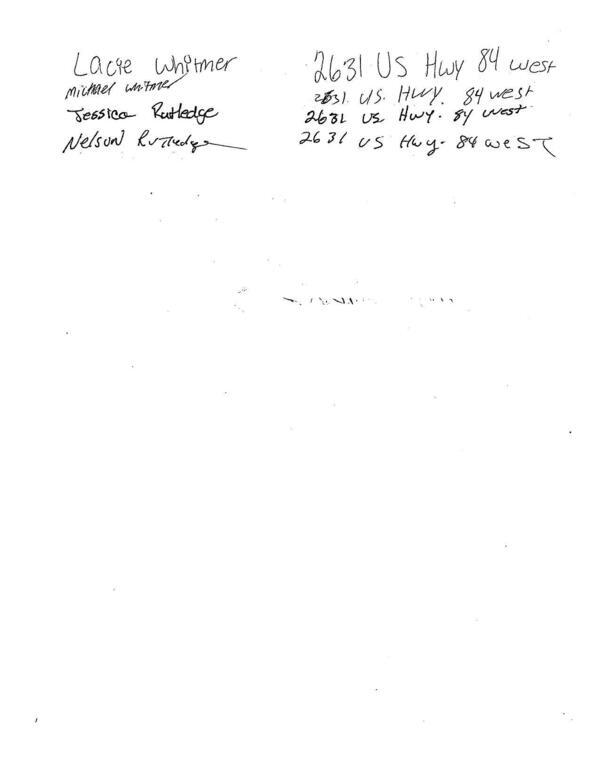 Lacie Whitmer 2631 US Hwy 84 west
Michael Whitmer 2631 US. HWY. 84 west
Jessica Rutledge 2631 US Hwy. 84 west
Nelson Rutledge 2631 US Hwy. 84 weST